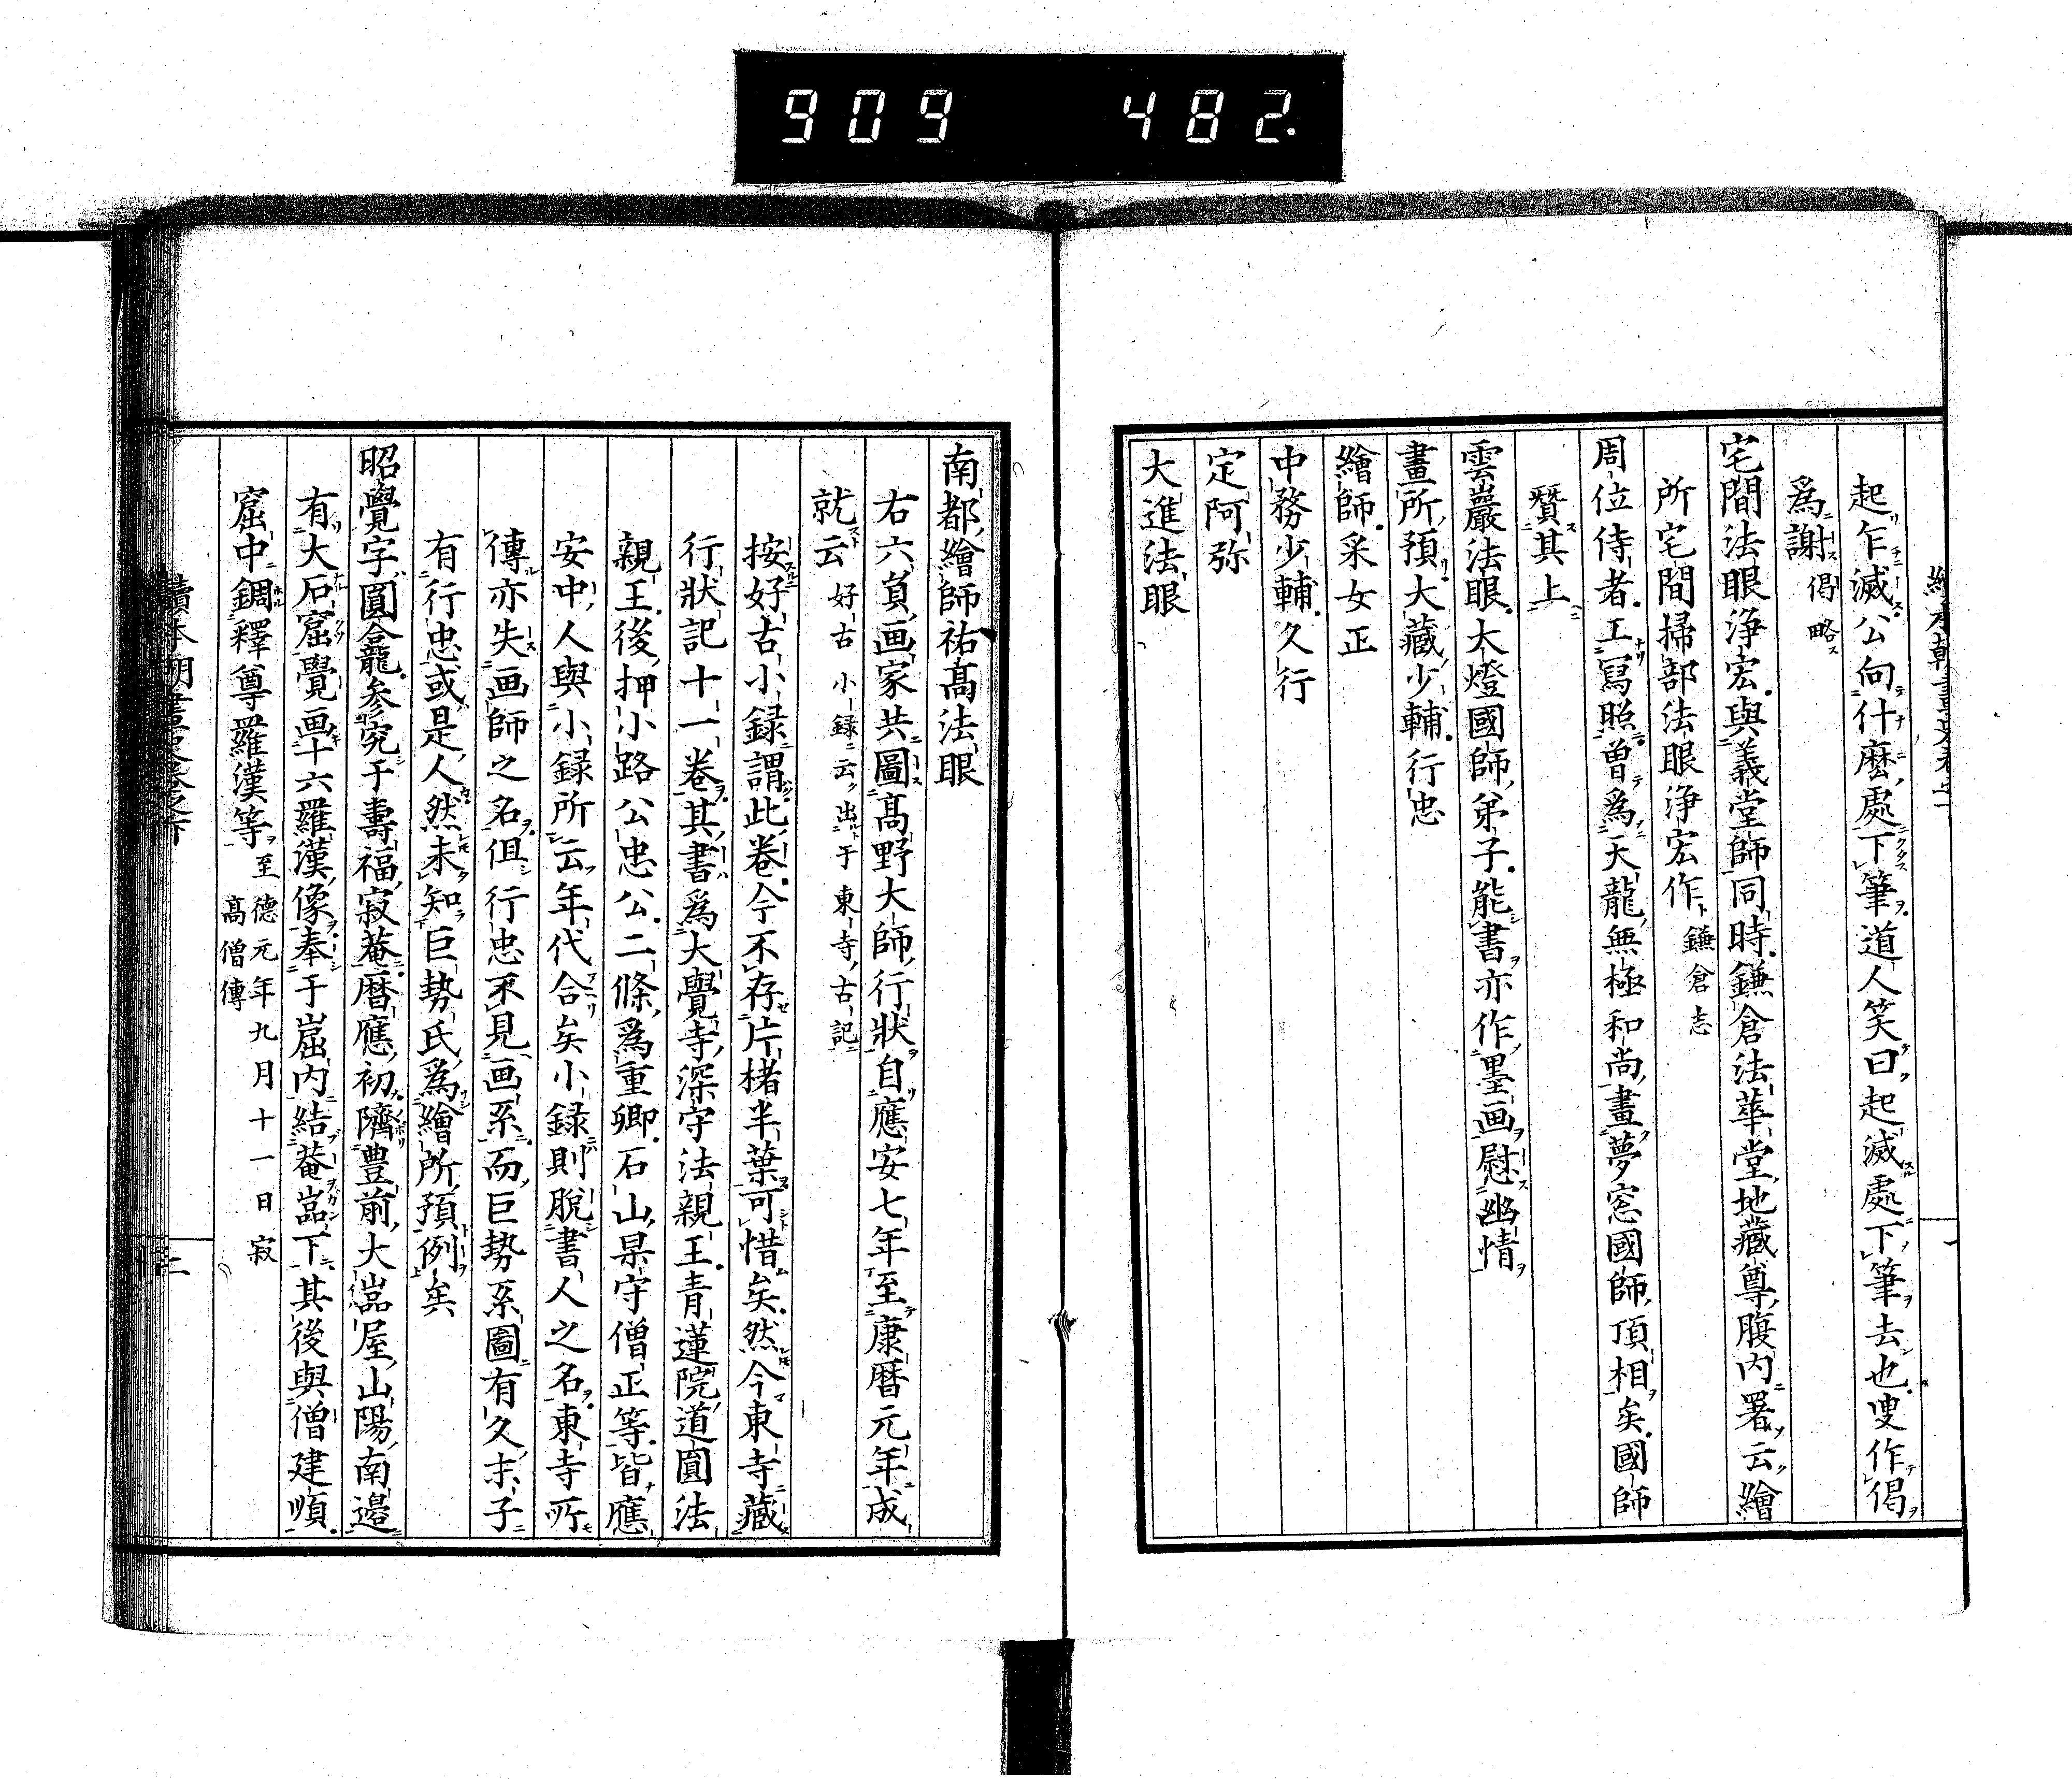 909 482.
起乍滅公向什麼處下筆道人笑曰起滅處下筆去也叟作偈
爲謝偈略ス
宅間法眼浄宏與義堂師同時鎌倉法華堂地藏尊腹内署云繪
所宅間掃部法眼浄宏作鎌倉志
周位侍者工寫照曽爲天龍無極和尚畫夢窓國師頂相矣國師
贊其上
雲巖法眼大燈國師弟子能書亦作墨画慰幽情
畫所預大藏少輔行忠
繪師采女正
中務少輔久行
定阿弥
大進法眼
南都繪師祐髙法眼
右六員画家共圖髙野大師行狀自應安七年至康暦元年成
就云好古小録ニ云ク出于東寺古記
按好古小録謂此卷今不存片楮半葉可惜矣然今東寺藏
行狀記十一卷其書爲大覺寺深守法親王青蓮院道圓法
親王後押小路公忠公二條爲重卿石山杲守僧正等皆應
安中人與小録所云年代合矣小録則脫書人之名東寺所
傳亦失画師之名但行忠不見画系而巨勢系圖有久末子
有行忠或是人然未知巨勢氏爲繪所預例矣
昭覺字圓龕参究于壽福寂菴暦應初隮豊前大嵓屋山陽南邉
有大石窟覺画十六羅漢像奉于嵓内結菴嵓下其後與僧建順
窟中鐫釋尊羅漢等至德元年九月十一日寂髙僧傳
續本朝畫史卷之下 二